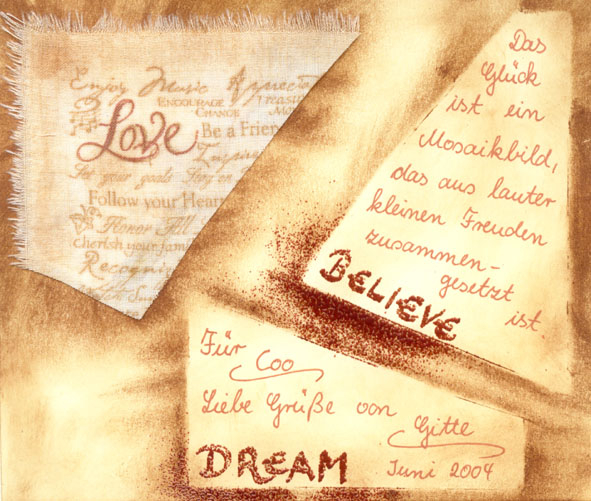 Enjoy Music
ENCOURAGE
CHANGE
Love
Be a Frien
Set your goals
Follow your Heart
Honor All
Cherish your fam
Recogni
Das
Glück
ist ein
Mosaikbild,
das aus lauter
kleinen Freuden
zusammen-
gesetzt
ist.
BELIEVE
Für Coo
Liebe Grüße von
Gitte
DREAM
Juni 2004